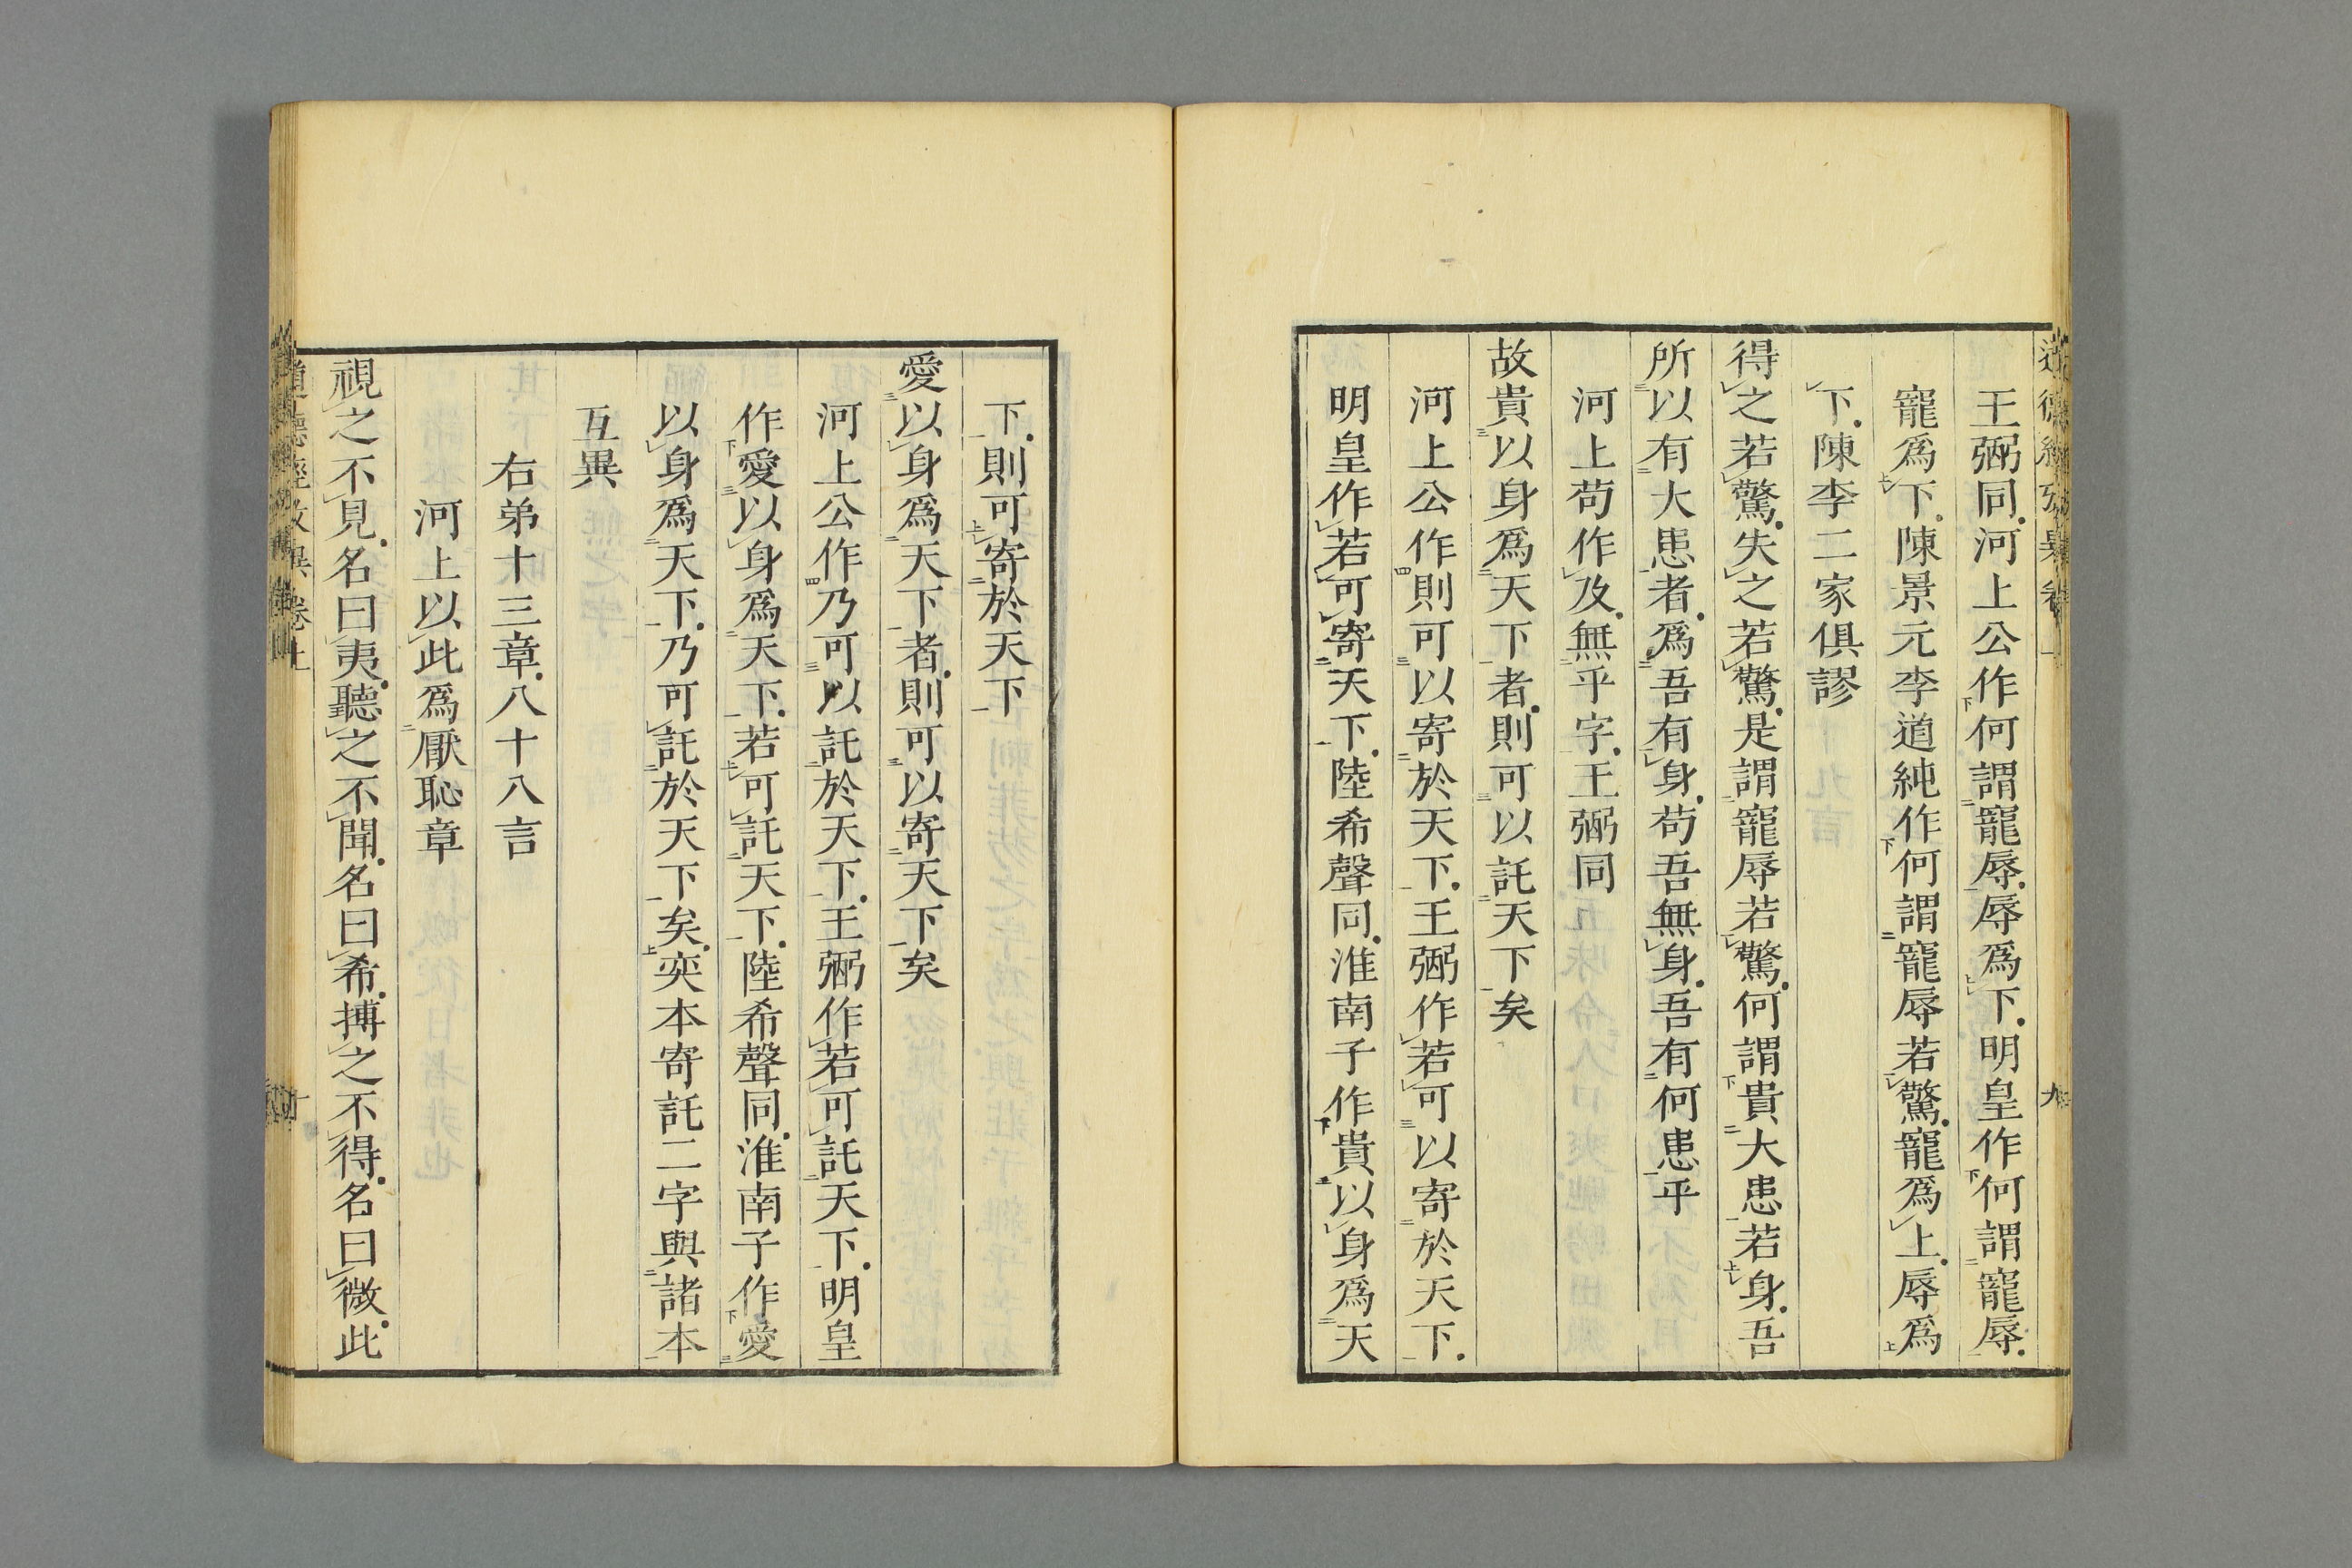 王弼同河上公作何謂寵辱辱爲下明皇作何謂寵辱
寵爲下陳景元李道純作何謂寵辱若驚寵爲上辱爲
下陳李二家俱謬
得之若驚失之若驚是謂寵辱若驚何謂貴大患若身吾
所以有大患者爲吾有身苟吾無身吾有何患乎
河上苟作及無乎字王弼同
故貴以身爲天下者則可以託天下矣
河上公作則可以寄於天下王弼作若可以寄於天下
明皇作若可寄天下陸希聲同淮南子作貴以身爲天
下則可寄於天下
愛以身爲天下者則可以寄天下矣
河上公作乃可以託於天下王弼作若可託天下明皇
作愛以身爲天下若可託天下陸希聲同淮南子作愛
以身爲天下乃可託於天下矣奕本寄託二字與諸本
互異
右弟十三章八十八言
河上以此爲厭恥章
視之不見名曰夷聽之不聞名曰希搏之不得名曰微此
道德經攷異卷上